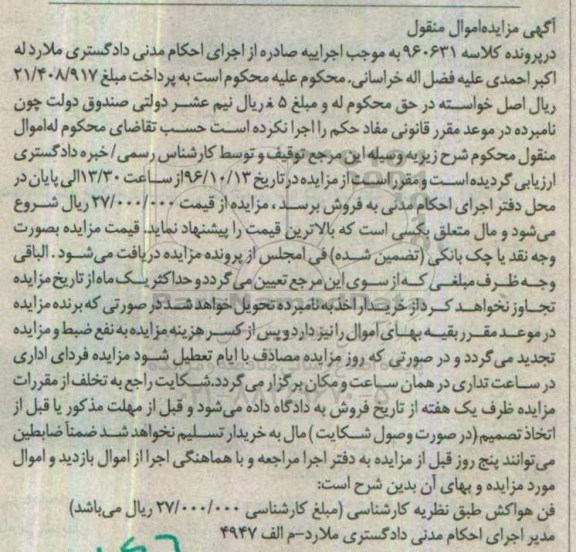 آگهی مزایده‌اموال منقول
درپرونده کلاسه ۹۶۰۶۳۱ به موجب اجراییه صادره از اجرای احکام مدنی دادگستری ملارد له
اکبر احمدی علیه فضل اله خراسانی. محکوم علیه محکوم است به پرداخت مبلغ ۲۱/۴۰۸/۹۱۷
ریال اصل خواسته در حق محکوم له و مبلغ ۵ ریال نیم عشر دولتی صندوق دولت چون
نامبرده در موعد مقرر قانونی مفاد حکم را اجرا نکرده است حسب تقاضای محکوم له‌اموال
منقول محکوم شرح زیر به وسیله این مرجع توقیف و توسط کارشناس رسمی / خبره دادگستری
ارزیابی گردیده است و مقرر است از مزایده در تاریخ ۹۶/۱۰/۱۳از ساعت ۱۳/۳۰الی پایان در
محل دفتر اجرای احکام مدنی به فروش برسد ، مزایده از قیمت ۲۷/۰۰۰/۰۰۰ ریال شروع
می‌شود و مال متعلق بکسی است که بالاترین قیمت را پیشنهاد نماید. قیمت مزایده بصورت
وجه نقد یا چک بانکی (تضمین شده) فی امجلس از پرونده مزایده دریافت می‌شود . الباقی
وجه ظرف مبلغی که از سوی این مرجع تعیین می گردد و حداکثر یک ماه از تاریخ مزایده
تجاوز نخواهد کرد از خریدار اخذ به نامبرده تحویل خواهد شد در صورتی که برنده مزایده
در موعد مقرر بقیه بهای اموال را نیز دارد و پس از کسر هزینه مزایده به نفع ضبط و مزایده
تجدید می گردد و در صورتی که روز مزایده مصادف با ایام تعطیل شود مزایده فردای اداری
در ساعت تداری در همان ساعت و مکان برگزار می گردد.شکایت راجع به تخلف از مقررات
مزایده ظرف یک هفته از تاریخ فروش به دادگاه داده می‌شود و قبل از مهلت مذکور یا قبل از
اتخاذ تصمیم (در صورت وصول شکایت ) مال به خریدار تسلیم نخواهد شد ضمناً ضابطین
می‌توانند پنج روز قبل از مزایده به دفتر اجرا مراجعه و با هماهنگی اجرا از اموال بازدید و اموال
مورد مزایده و بهای آن بدین شرح است:
فن هواکش طبق نظریه کارشناسی (مبلغ کارشناسی ۲۷/۰۰۰/۰۰۰ ریال می‌باشد)
مدیر اجرای احکام مدنی دادگستری ملارد–م الف ۴۹۴۷